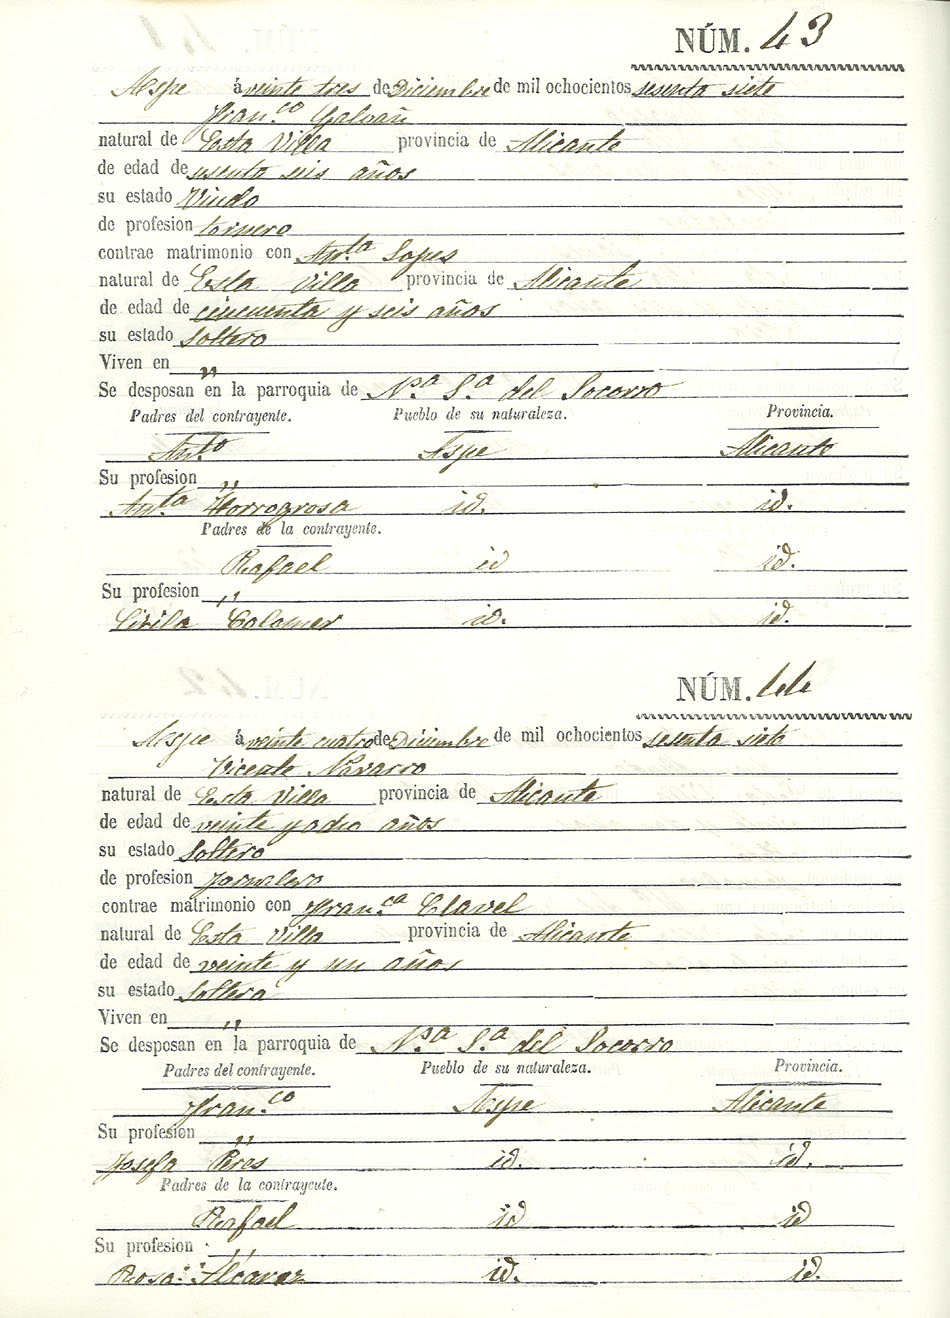 NÚM. 43
Aspe á veinte tres de Diciembre de mil ochocientos sesenta siete
Fran.co Galvañ
natural de Esta Villa provincia de Alicante
de edad de sesenta seis años
su estado Viudo
de profesion tornero
contrae matrimonio con Ant.ta Lopes
natural de Esta Villa provincia de Alicante
de edad de cincuenta y seis años
su estado Soltero
Viven en "
Se desposan en la parroquia de N.ª S.ª del Socorro
Padres del contrayente. Pueblo de su naturaleza. Provincia.
Ant.to Aspe Alicante
Su profesion "
Ant.ta Torrogrosa id. id.
Padres de la contrayente.
Rafael id id.
Su profesion "
Cirila Colomer id. id.
NÚM. 44
Aspe á veinte cuatro de Diciembre de mil ochocientos sesenta siete
Vicente Navarro
natural de Esta Villa provincia de Alicante
de edad de veinte y ocho años
su estado Soltero
de profesion Jornalero
contrae matrimonio con Fran.ca Clavel
natural de Esta Villa provincia de Alicante
de edad de veinte y un años
su estado Soltera
Viven en "
Se desposan en la parroquia de N.ª S.ª del Socorro
Padres del contrayente. Pueblo de su naturaleza. Provincia.
Fran.co Aspe Alicante
Su profesion "
Josefa Peres id. id.
Padres de la contrayente.
Rafael id id
Su profesion "
Rosa Alcaraz id. id.